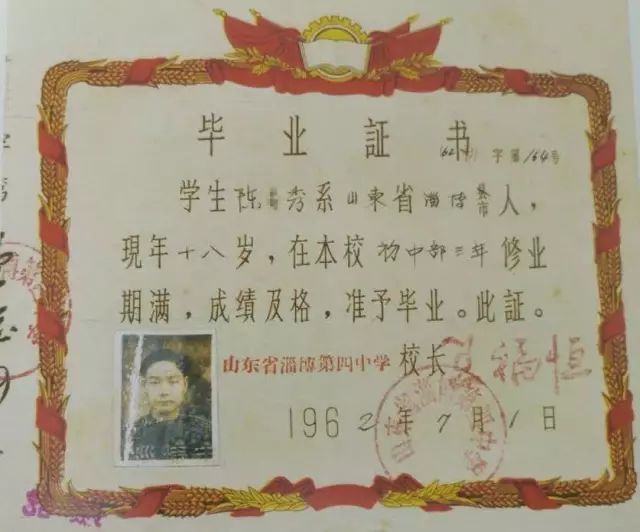 毕业証书
(62初)字第164号
学生陈秀系山東省淄博县市人，
現年十八岁，在本校初中部三年修业
期满，成績及格，准予毕业。此証。
山东省淄博第四中学 校长 福恒
1962年7月1日